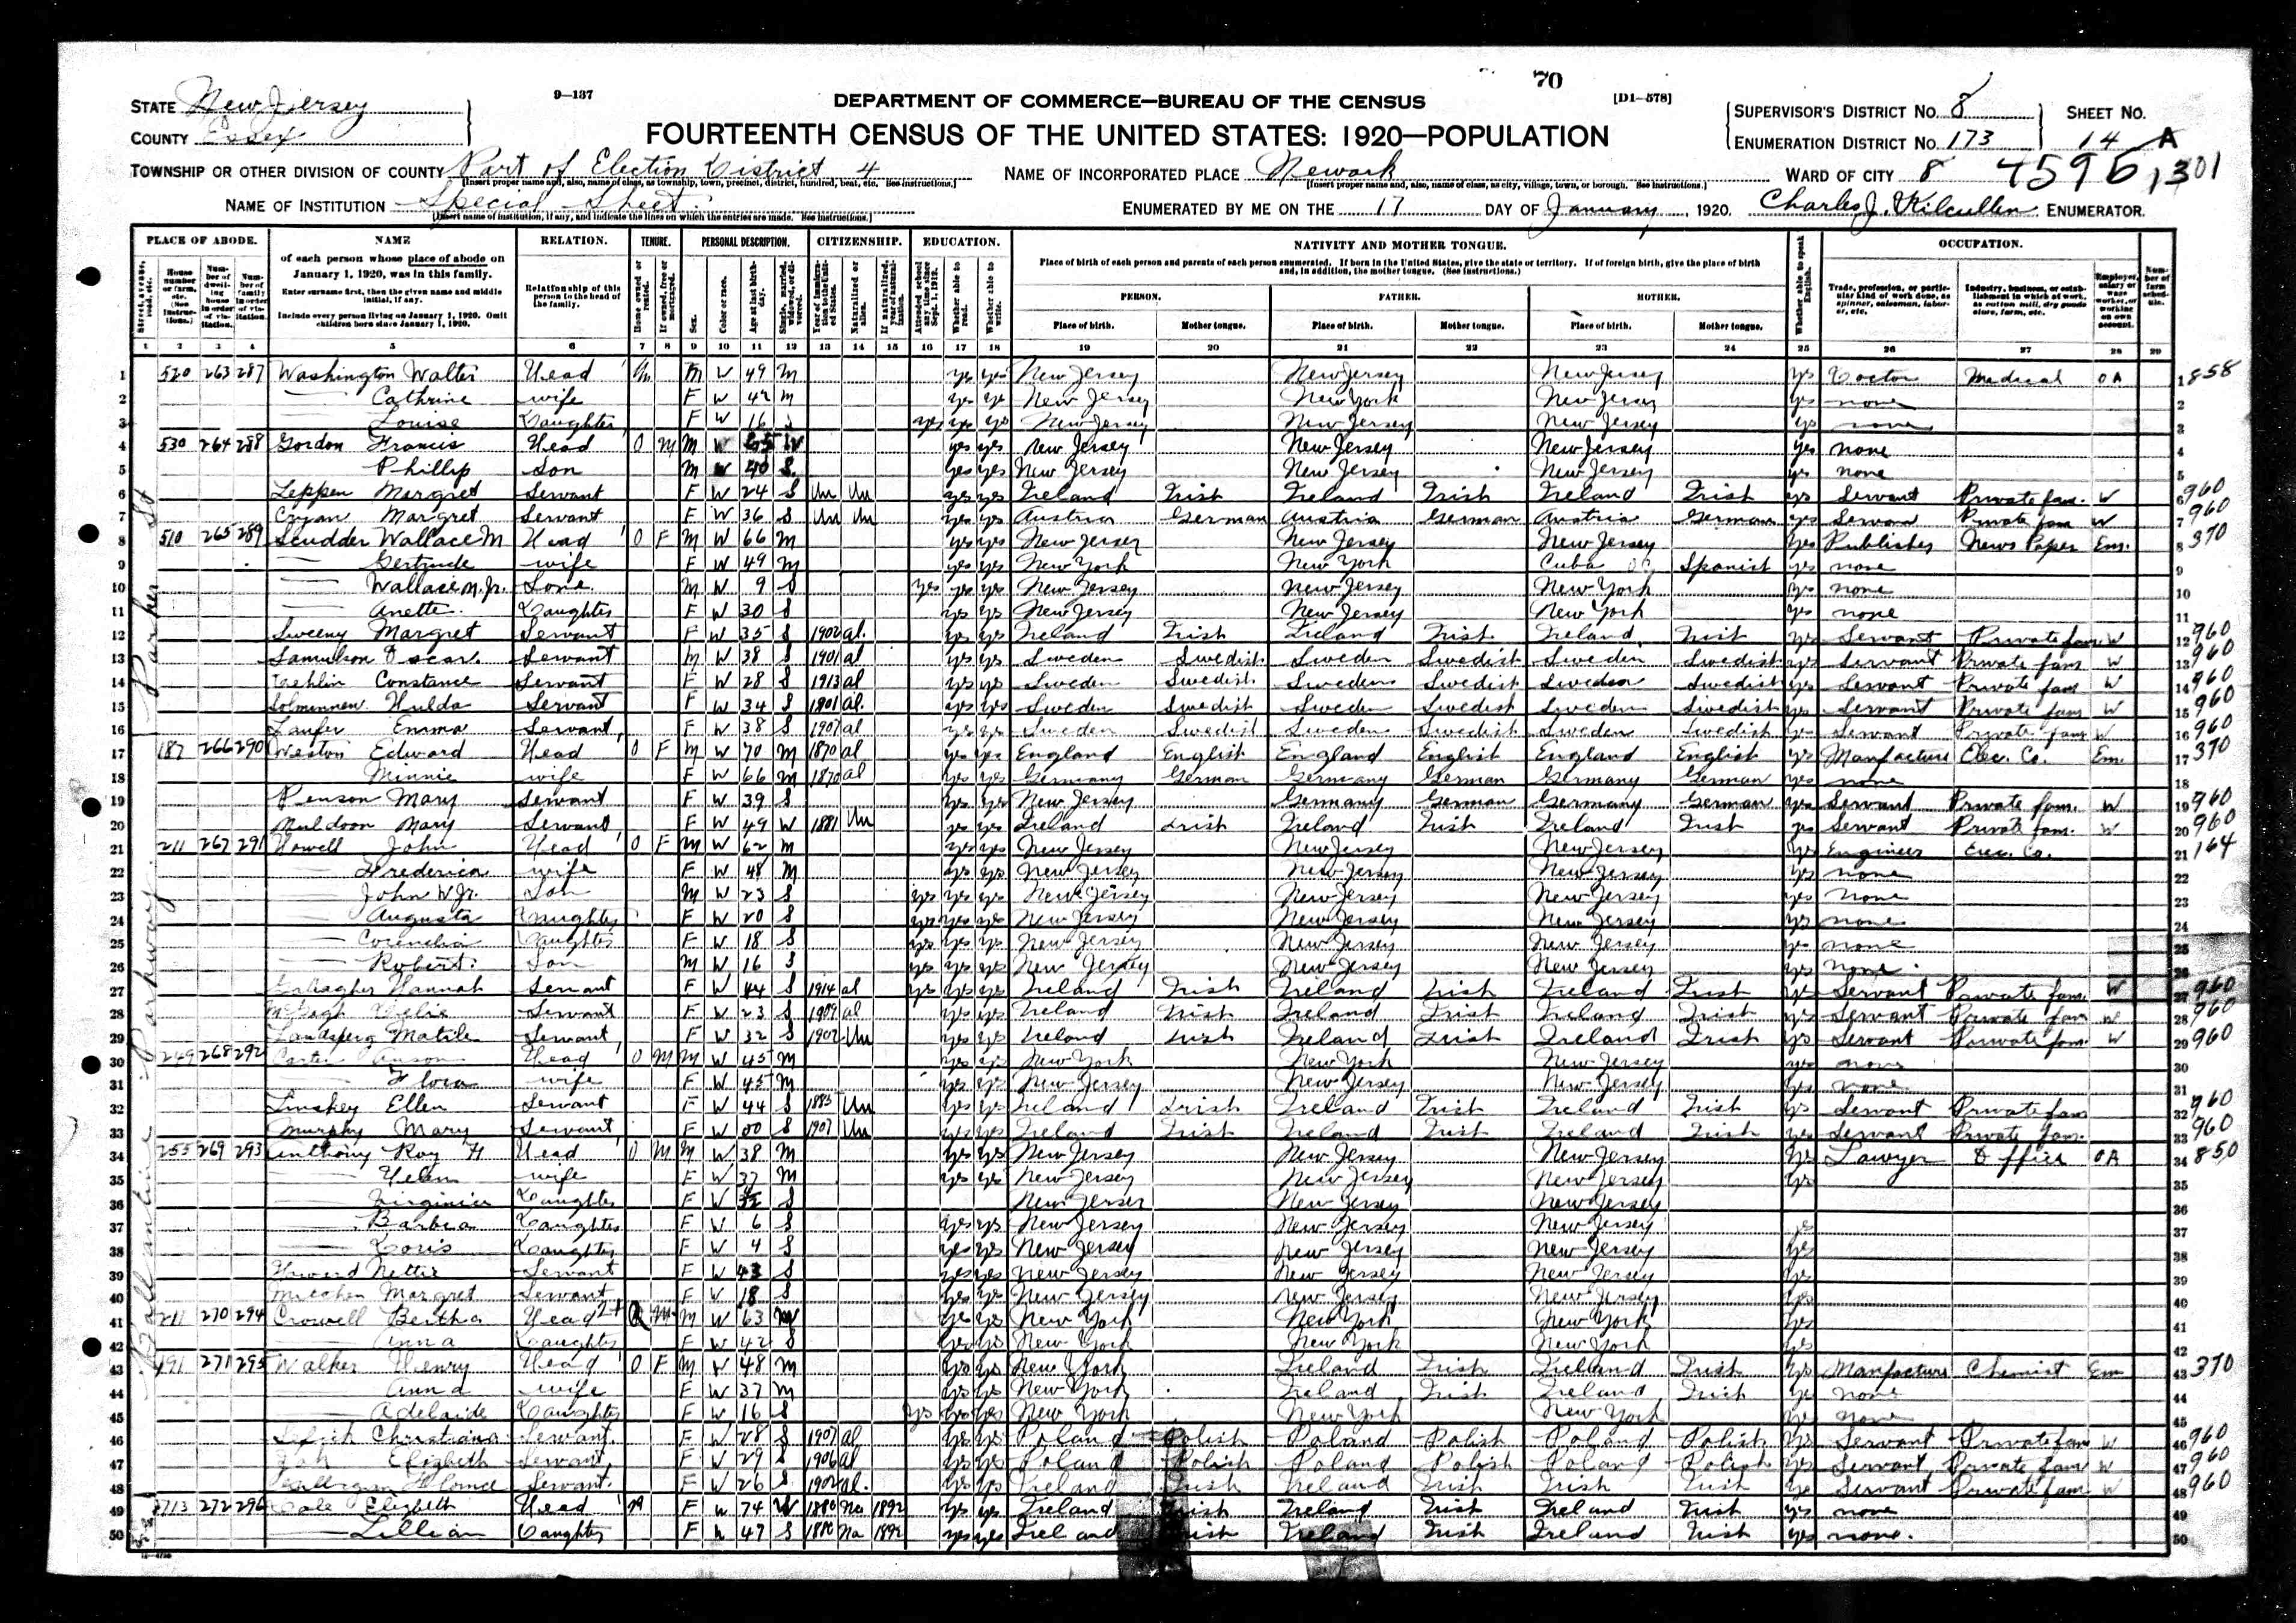 70
STATE New Jersey
9—137
DEPARTMENT OF COMMERCE—BUREAU OF THE CENSUS
[D1—578]
SUPERVISOR'S DISTRICT No. 8
SHEET No.
COUNTY Essex
FOURTEENTH CENSUS OF THE UNITED STATES: 1920—POPULATION
ENUMERATION DISTRICT No. 173
14 A
TOWNSHIP OR OTHER DIVISION OF COUNTY Part of Election District 4
[Insert proper name and, also, name of class, as township, town, precinct, district, hundred, beat, etc. See instructions.]
NAME OF INCORPORATED PLACE Newark
[Insert proper name and, also, name of class, as city, village, town, or borough. See instructions.]
WARD OF CITY 8
1301
NAME OF INSTITUTION Special Sheet.
[Insert name of institution, if any, and indicate the lines on which the entries are made. See instructions.]
ENUMERATED BY ME ON THE 17 DAY OF January, 1920. Charles J. Kilcullen ENUMERATOR.
PLACE OF ABODE. NAME RELATION. TENURE. PERSONAL DESCRIPTION. CITIZENSHIP. EDUCATION. NATIVITY AND MOTHER TONGUE. OCCUPATION.
of each person whose place of abode on January 1, 1920, was in this family.
Enter surname first, then the given name and middle initial, if any.
Include every person living on January 1, 1920. Omit children born since January 1, 1920.
Relationship of this person to the head of the family.
Place of birth of each person and parents of each person enumerated. If born in the United States, give the state or territory. If of foreign birth, give the place of birth and, in addition, the mother tongue. (See instructions.)
PERSON. FATHER. MOTHER.
Place of birth. Mother tongue. Place of birth. Mother tongue. Place of birth. Mother tongue.
1 2 3 4 5 6 7 8 9 10 11 12 13 14 15 16 17 18 19 20 21 22 23 24 25 26 27 28 29
1 520 263 287 Washington Walter Head M W 49 M yes yes New Jersey New Jersey New Jersey yes Doctor Medical OA 858
2 Cathrine wife F W 42 M yes yes New Jersey New York New Jersey yes none
3 Louise Daughter F W 16 S yes yes yes New Jersey New Jersey New Jersey yes none
4 530 264 288 Gordon Francis Head O M M W yes yes New Jersey New Jersey New Jersey yes none
5 Phillip Son M W 40 S yes yes New Jersey New Jersey New Jersey yes none
6 Margret Servant F W 24 S Un Un yes yes Ireland Irish Ireland Irish Ireland Irish yes Servant Private fam. W 960
7 Margret Servant F W 36 S Un Un yes yes Austria German Austria German Austria German yes Servant Private fam W 960
8 510 265 289 Scudder Wallace M Head O F M W 66 M yes yes New Jersey New Jersey New Jersey yes Publisher News Paper Em. 370
9 Gertrude wife F W 49 M yes yes New York New York Cuba Spanish yes none
10 Wallace M. Jr. Sone M W 9 S yes yes yes New Jersey New Jersey New York yes none
11 Anette Daughter F W 30 S yes yes New Jersey New Jersey New York yes none
12 Sweeny Margret Servant F W 35 S al. yes yes Ireland Irish Ireland Irish Ireland Irish yes Servant Private fam W 960
13 Samulson Oscar Servant M W 38 S 1901 al yes yes Sweden Swedish Sweden Swedish Sweden Swedish yes Servant Private fam W 960
14 Constance Servant F W 28 S 1913 al yes yes Sweden Swedish Sweden Swedish Sweden Swedish yes Servant Private fam W 960
15 Hulda Servant F W 34 S 1901 al. yes yes Sweden Swedish Sweden Swedish Sweden Swedish yes Servant Private fam W 960
16 Laufer Emma Servant F W 38 S 1907 al yes yes Sweden Swedish Sweden Swedish Sweden Swedish yes Servant Private fam W 960
17 187 266 290 Weston Edward Head O F M W 70 M 1870 al yes yes England English England English England English yes Manufacture Elec. Co. Em. 370
18 Minnie wife F W 66 M 1870 al yes yes Germany German Germany German Germany German yes none
19 Penson Mary Servant F W 39 S yes yes New Jersey Germany German Germany German yes Servant Private fam. W 960
20 Muldoon Mary Servant F W 49 W 1881 Un yes yes Ireland Irish Ireland Irish Ireland Irish yes Servant Private fam. W 960
21 211 267 291 Howell John Head O F M W 62 M yes yes New Jersey New Jersey New Jersey yes Engineer Elec. Co. 164
22 Frederica wife F W 48 M yes yes New Jersey New Jersey New Jersey yes none
23 John W Jr. Son M W 23 S yes yes yes New Jersey New Jersey New Jersey yes none
24 Augusta Daughter F W 20 S yes yes yes New Jersey New Jersey New Jersey yes none
25 Daughter F W 18 S yes yes yes New Jersey New Jersey New Jersey yes none
26 Robert Son M W 16 S yes yes yes New Jersey New Jersey New Jersey yes none
27 Gallagher Hannah Servant F W 44 S 1914 al yes yes yes Ireland Irish Ireland Irish Ireland Irish yes Servant Private fam. W 960
28 Delia Servant F W 23 S 1909 al yes yes Ireland Irish Ireland Irish Ireland Irish yes Servant Private fam W 960
29 Landsperg Matile Servant F W 32 S 1907 Un yes yes Ireland Irish Ireland Irish Ireland Irish yes Servant Private fam. W 960
30 249 268 292 Carter Anson Head O M M W 45 M yes yes New York New York New Jersey yes none
31 Flora wife F W 45 M yes yes New Jersey New Jersey New Jersey yes none
32 Linskey Ellen Servant F W 44 S 1885 Un yes yes Ireland Irish Ireland Irish Ireland Irish yes Servant Private fam 960
33 Murphy Mary Servant F W 00 S 1907 Un yes yes Ireland Irish Ireland Irish Ireland Irish yes Servant Private fam. 960
34 255 269 293 Anthony Roy H Head O M M W 38 M yes yes New Jersey New Jersey New Jersey yes Lawyer Office OA 850
35 Helen wife F W 37 M yes yes New Jersey New Jersey New Jersey yes
36 Virginia Daughter F W S New Jersey New Jersey New Jersey
37 Barbra Daughter F W 6 S yes yes New Jersey New Jersey New Jersey yes
38 Doris Daughter F W 4 S yes yes New Jersey New Jersey New Jersey yes
39 Howard Nettie Servant F W 43 S yes yes New Jersey New Jersey New Jersey yes
40 Margret Servant F W 18 S yes yes New Jersey New Jersey New Jersey yes
41 211 270 294 Crowell Bertha Head M W 63 yes yes New York New York New York yes
42 Anna Daughter F W 42 S yes yes New York New York New York yes
43 191 271 295 Walker Henry Head O F M W 48 M yes yes New York Ireland Irish Ireland Irish yes Manfacture Chemist Em 370
44 Anna wife F W 37 M yes yes New York Ireland Irish Ireland Irish yes none
45 Adelaide Daughter F W 16 S yes yes yes New York New York New York yes none
46 Christiana Servant F W 28 S 1907 al yes yes Poland Polish Poland Polish Poland Polish yes Servant Private fam W 960
47 Elizbeth Servant F W 29 S 1906 al yes yes Poland Polish Poland Polish Poland Polish yes Servant Private fam W 960
48 Servant F W 26 S 1902 al. yes yes Ireland Irish Ireland Irish Irish Irish yes Servant Private fam W 960
49 272 296 Cale Elizbeth Head F W 74 W 1880 Na 1892 yes yes Ireland Irish Ireland Irish Ireland Irish yes none
50 Lillian Daughter F W 47 S 1880 Na 1892 yes yes Ireland Irish Ireland Irish Ireland Irish yes none.
Parker St
Ballantine Parkway